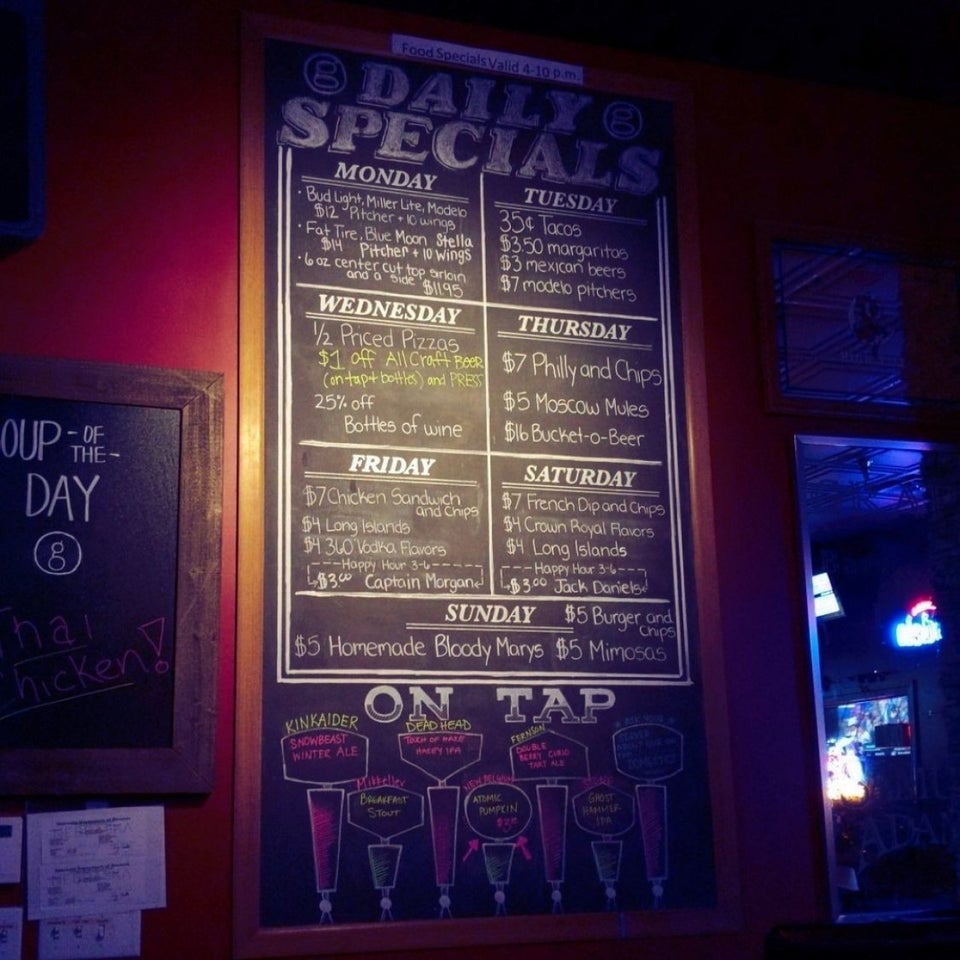 Food Specials Valid 4-10 p.m.
g DAILY g
SPECIALS
MONDAY
• Bud Light, Miller Lite, Modelo
$12 Pitcher + 10 wings
• Fat Tire, Blue Moon Stella
$14 Pitcher + 10 wings
• 6 oz center cut top sirloin
and a side $11.95
TUESDAY
35¢ Tacos
$3.50 margaritas
$3 mexican beers
$7 modelo pitchers
WEDNESDAY
1/2 Priced Pizzas
$1 off All Craft Beer
(on-tap + bottles) and PRESS
25% off
Bottles of wine
THURSDAY
$7 Philly and Chips
$5 Moscow Mules
$16 Bucket-o-Beer
FRIDAY
$7 Chicken Sandwich
and Chips
$4 Long Islands
$4 360 Vodka Flavors
Happy Hour 3-6
$3.00 Captain Morgan
SATURDAY
$7 French Dip and Chips
$4 Crown Royal Flavors
$4 Long Islands
Happy Hour 3-6
$3.00 Jack Daniels
SUNDAY $5 Burger and
Chips
$5 Homemade Bloody Marys $5 Mimosas
ON TAP
KINKAIDER
SNOWBEAST
WINTER ALE
Mikkeller
BREAKFAST
STOUT
DEAD HEAD
TOUCH OF HAZE
HAZEY IPA
NEW BELGIUM
ATOMIC
PUMPKIN
FERNSON
DOUBLE
BERRY CURIO
TART ALE
GHOST
HAMMER
IPA
ASK YOUR
SERVER
OUP -OF
THE-
DAY
g
hai
hicken!